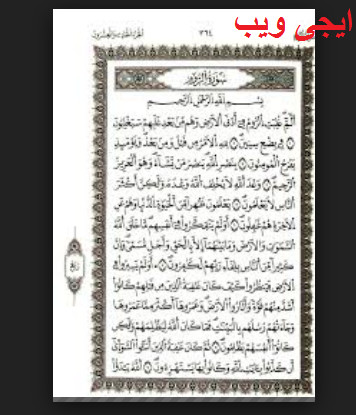 ایجی ویب
٣٦٤
سورة الروم
بسم الله الرحمن الرحيم
الم غلبت الروم في أدنى الأرض وهم من بعد غلبهم سيغلبون
في بضع سنين لله الأمر من قبل ومن بعد ويومئذ
يفرح المؤمنون بنصر الله ينصر من يشاء وهو العزيز
الرحيم وعد الله لا يخلف الله وعده ولكن أكثر
الناس لا يعلمون يعلمون ظهرا من الحيوة الدنيا وهم عن
الآخرة هم غفلون أولم يتفكروا في أنفسهم ما خلق الله
السموت والأرض وما بينهما إلا بالحق وأجل مسمى وإن
كثيرا من الناس بلقاء ربهم لكفرون أولم يسيروا في
الأرض فينظروا كيف كان عقبة الذين من قبلهم كانوا
أشد منهم قوة وأثاروا الأرض وعمروها أكثر مما عمروها
وجاءتهم رسلهم بالبينت فما كان الله ليظلمهم ولكن
كانوا أنفسهم يظلمون ثم كان عقبة الذين أسوا السوأى
أن كذبوا بآيت الله وكانوا بها يستهزءون الله يبدؤا